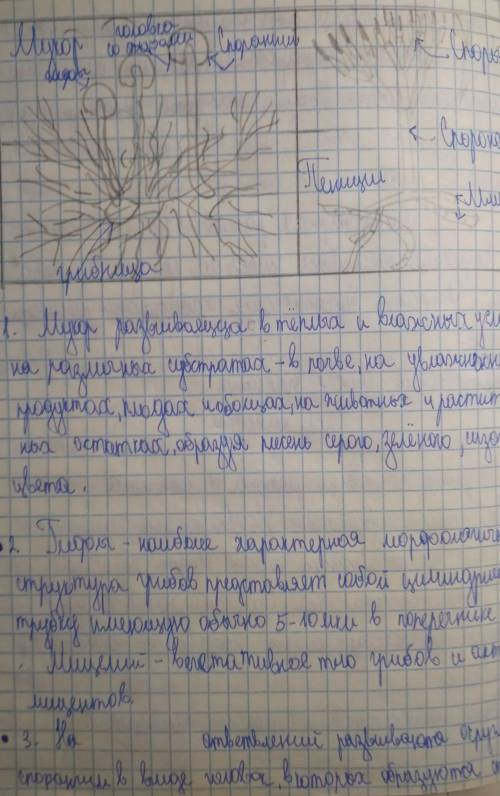 Мукор
головка
со спорами
Спорангий
Споры
Пеницилл
грибница
1. Мукор развивающца в тёплых и влажных усл
на различных субстратах - в почве, на увлажнённ
продуктах, плодах и овощах, на животных и растит
ных остатках, образуя плесень серого, зелёного, сизо
цвета.
2. Гифы - наиболее характерная морфологиче
структура грибов представляет собой цилиндриче
трубку имеющую обычно 5-10 мкм в поперечнике
Мицелий - вегетативное тело грибов и акти
мицетов.
3. На ответвлений развиваются округ
спорангии в виде головок, в которых образуются